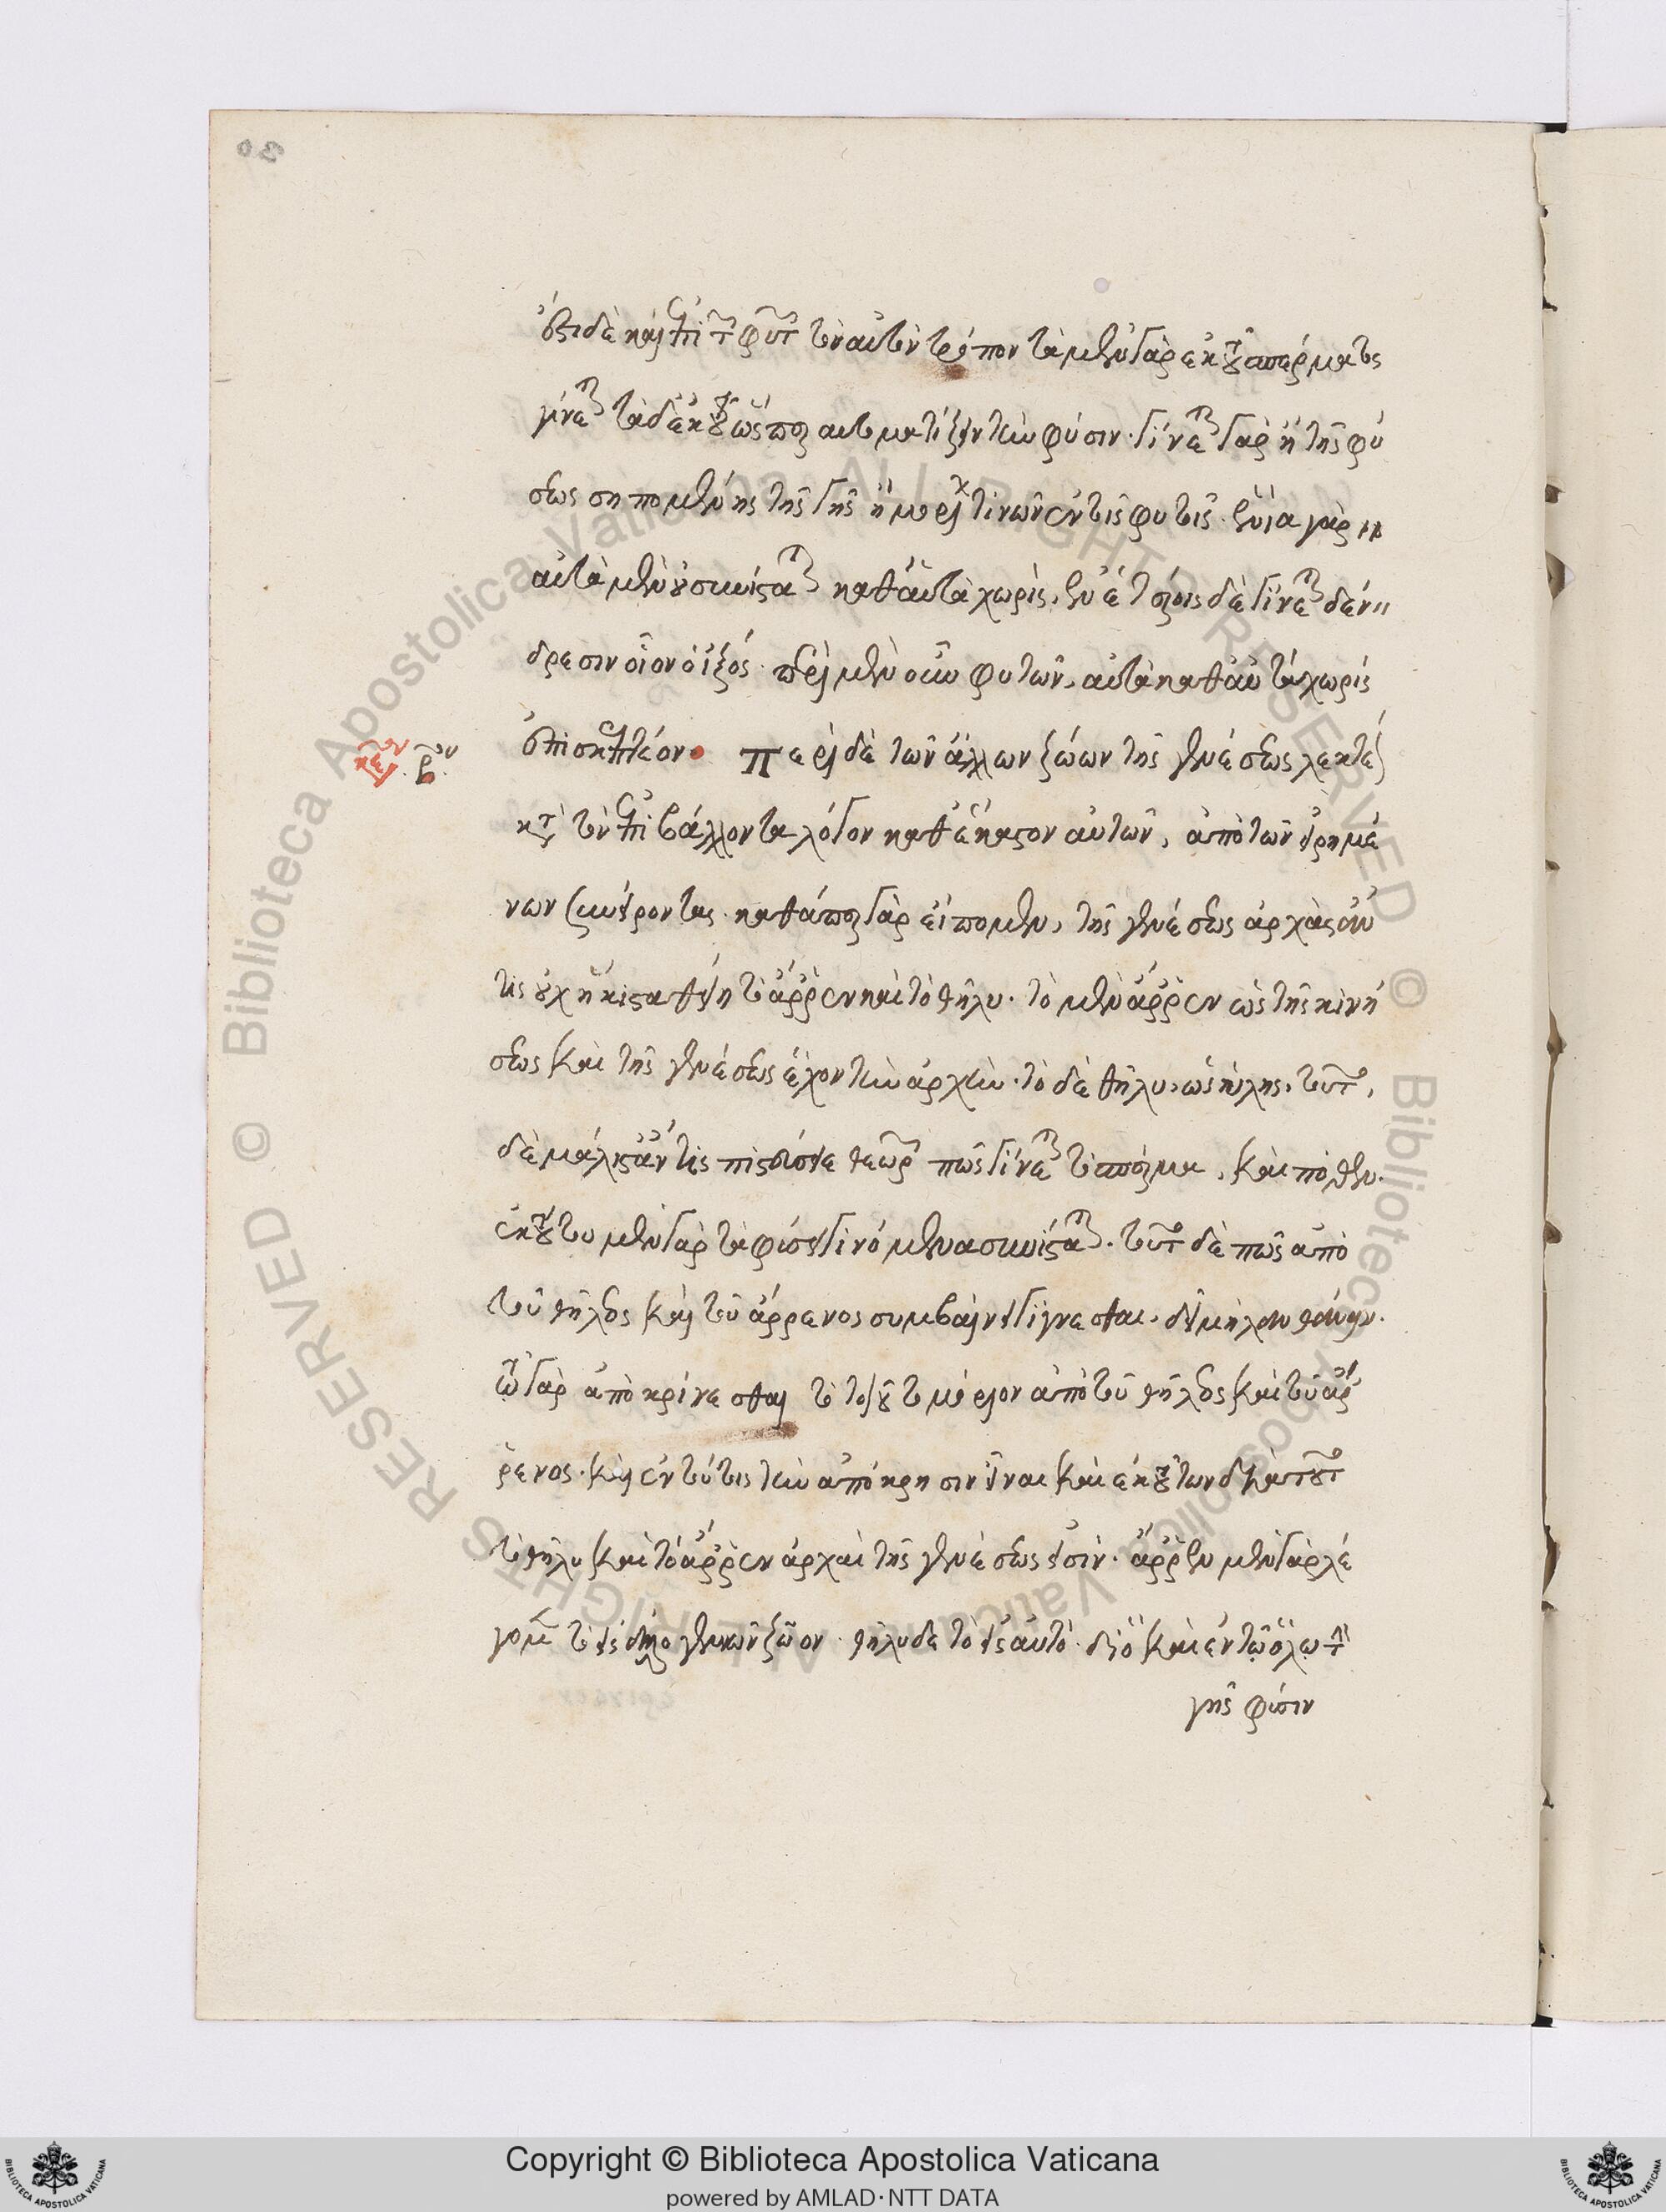 ἔστι δὲ καὶ ἐπὶ τῶν φυτῶν τὸν αὐτὸν τρόπον τὰ μὲν γὰρ ἐκ τοῦ σπέρματος
γίνεται τὰ δὲ ἐκ τοῦ ὥσπερ αὐτοματιζειν τὴν φύσιν. γίνεται γὰρ ἢ τῆς φύ
σεως σηπομένης τῆς γῆς ἢ μορίων τινῶν ἐν τοῖς φυτοῖς. ἔνια γὰρ
αὐτὰ μὲν οὐ συνίσταται καθ' αὑτὰ χωρίς, ἐν ἑτέροις δὲ γίνεται δέν
δρεσιν οἷον ὁ ἰξός. περὶ μὲν οὖν φυτῶν, αὐτὰ καθ' αὑτὰ χωρίς
ἐπισκεπτέον. Περὶ δὲ τῶν ἄλλων ζώων τῆς γενέσεως λεκτέ
κατὰ τὸν ἐπιβάλλοντα λόγον καθ' ἕκαστον αὐτῶν, ἀπὸ τῶν εἰρημέ
νων συνείροντας. καθάπερ γὰρ εἴπομεν, τῆς γενέσεως ἀρχὰς ἄν
τις οὐχ ἥκιστα θείη τὸ ἄρρεν καὶ τὸ θῆλυ. τὸ μὲν ἄρρεν ὡς τῆς κινή
σεως καὶ τῆς γενέσεως ἔχον τὴν ἀρχήν. τὸ δὲ θῆλυ, ὡς ὕλης. τοῦτο,
δὲ μάλιστ' ἄν τις πιστεύσειε θεωρῶν πῶς γίνεται τὸ σπέρμα, καὶ πόθεν.
ἐκ τούτου μὲν γὰρ τὰ φύσει γινόμενα συνίσταται. τοῦτο δὲ πῶς ἀπὸ
τοῦ θήλεος καὶ τοῦ ἄρρενος συμβαίνει γίγνεσθαι. δεῖ μὴ λανθάνειν.
τῷ γὰρ ἀποκρίνεσθαι τὸ τοιοῦτο μόριον ἀπὸ τοῦ θήλεος καὶ τοῦ ἄρ
ρενος. καὶ ἐν τούτοις τὴν ἀπόκρησιν εἶναι καὶ ἐκ τούτων διὰ τοῦτο
τὸ θῆλυ καὶ τὸ ἄρρεν ἀρχαὶ τῆς γενέσεως εἰσίν. ἄρρεν μὲν γὰρ λέ
γομεν τὸ εἰς ἄλλο γεννῶν ζῷον. θῆλυ δὲ τὸ εἰς αὑτό. διὸ καὶ ἐν τῷ ὅλῳ τὴν
γῆς φύσιν